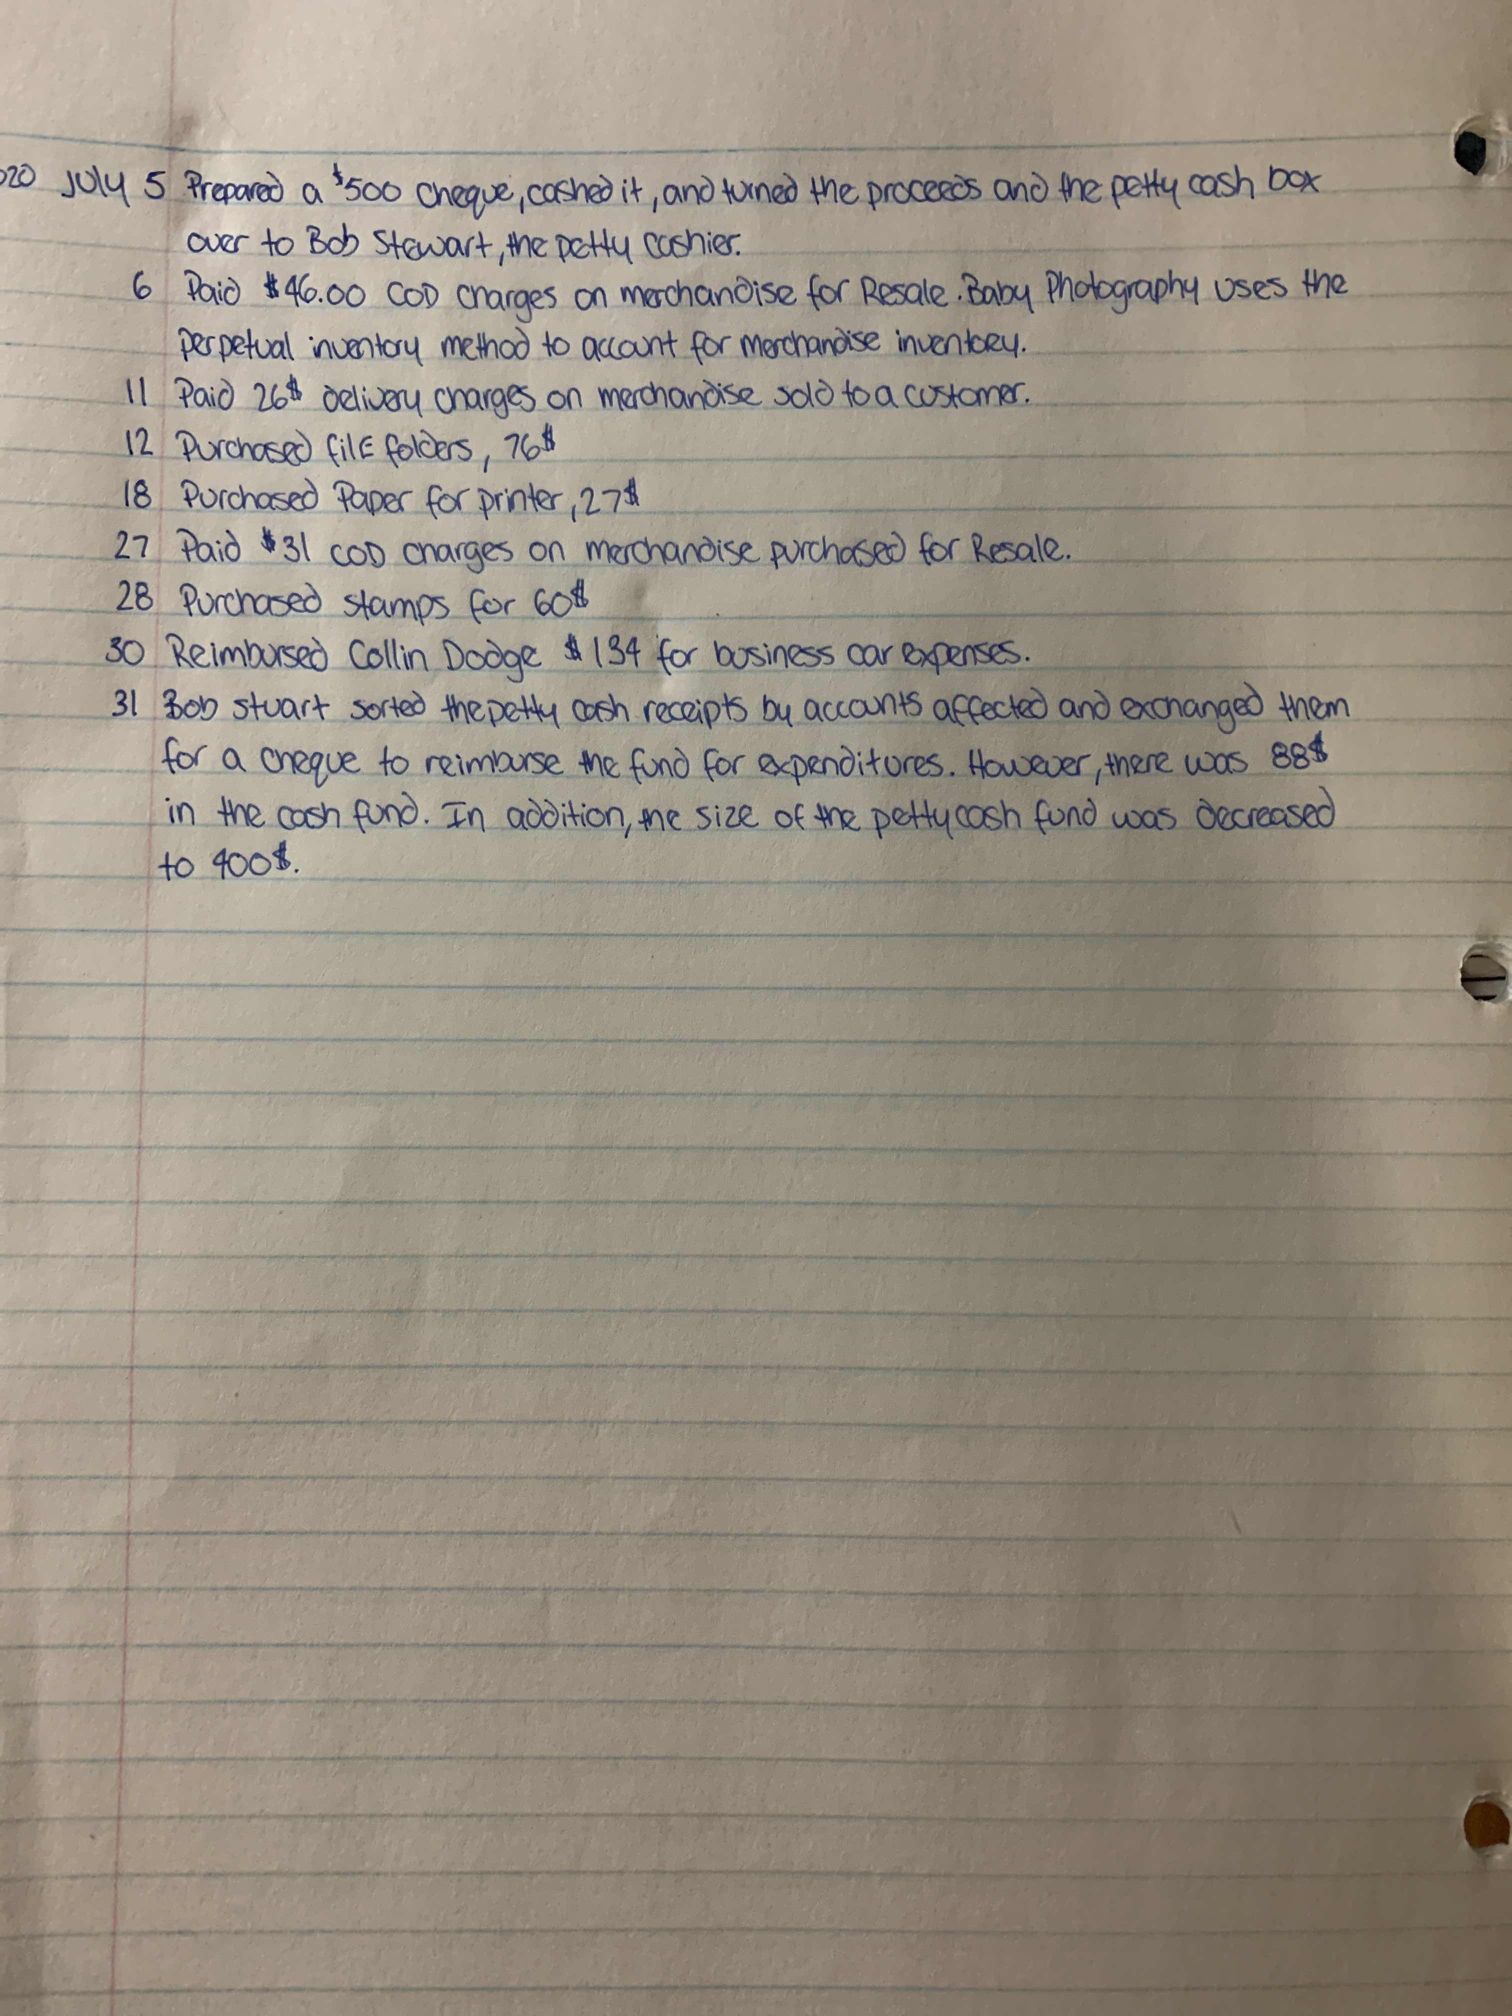 020 July 5 Prepared a $500 cheque, cashed it, and turned the proceeds and the petty cash box
over to Bob Stewart, the petty cashier.
6 Paid $46.00 COD charges on merchandise for Resale. Baby Photography uses the
perpetual inventory method to account for merchandise inventory.
11 Paid 26$ delivery charges on merchandise sold to a customer.
12 Purchased file folders, 76$
18 Purchased Paper for printer, 27$
27 Paid $31 COD charges on merchandise purchased for Resale.
28 Purchased stamps for 60$
30 Reimbursed Collin Dodge $134 for business car expenses.
31 Bob Stuart sorted the petty cash receipts by accounts affected and exchanged them
for a cheque to reimburse the fund for expenditures. However, there was 88$
in the cash fund. In addition, the size of the petty cash fund was decreased
to 400$.